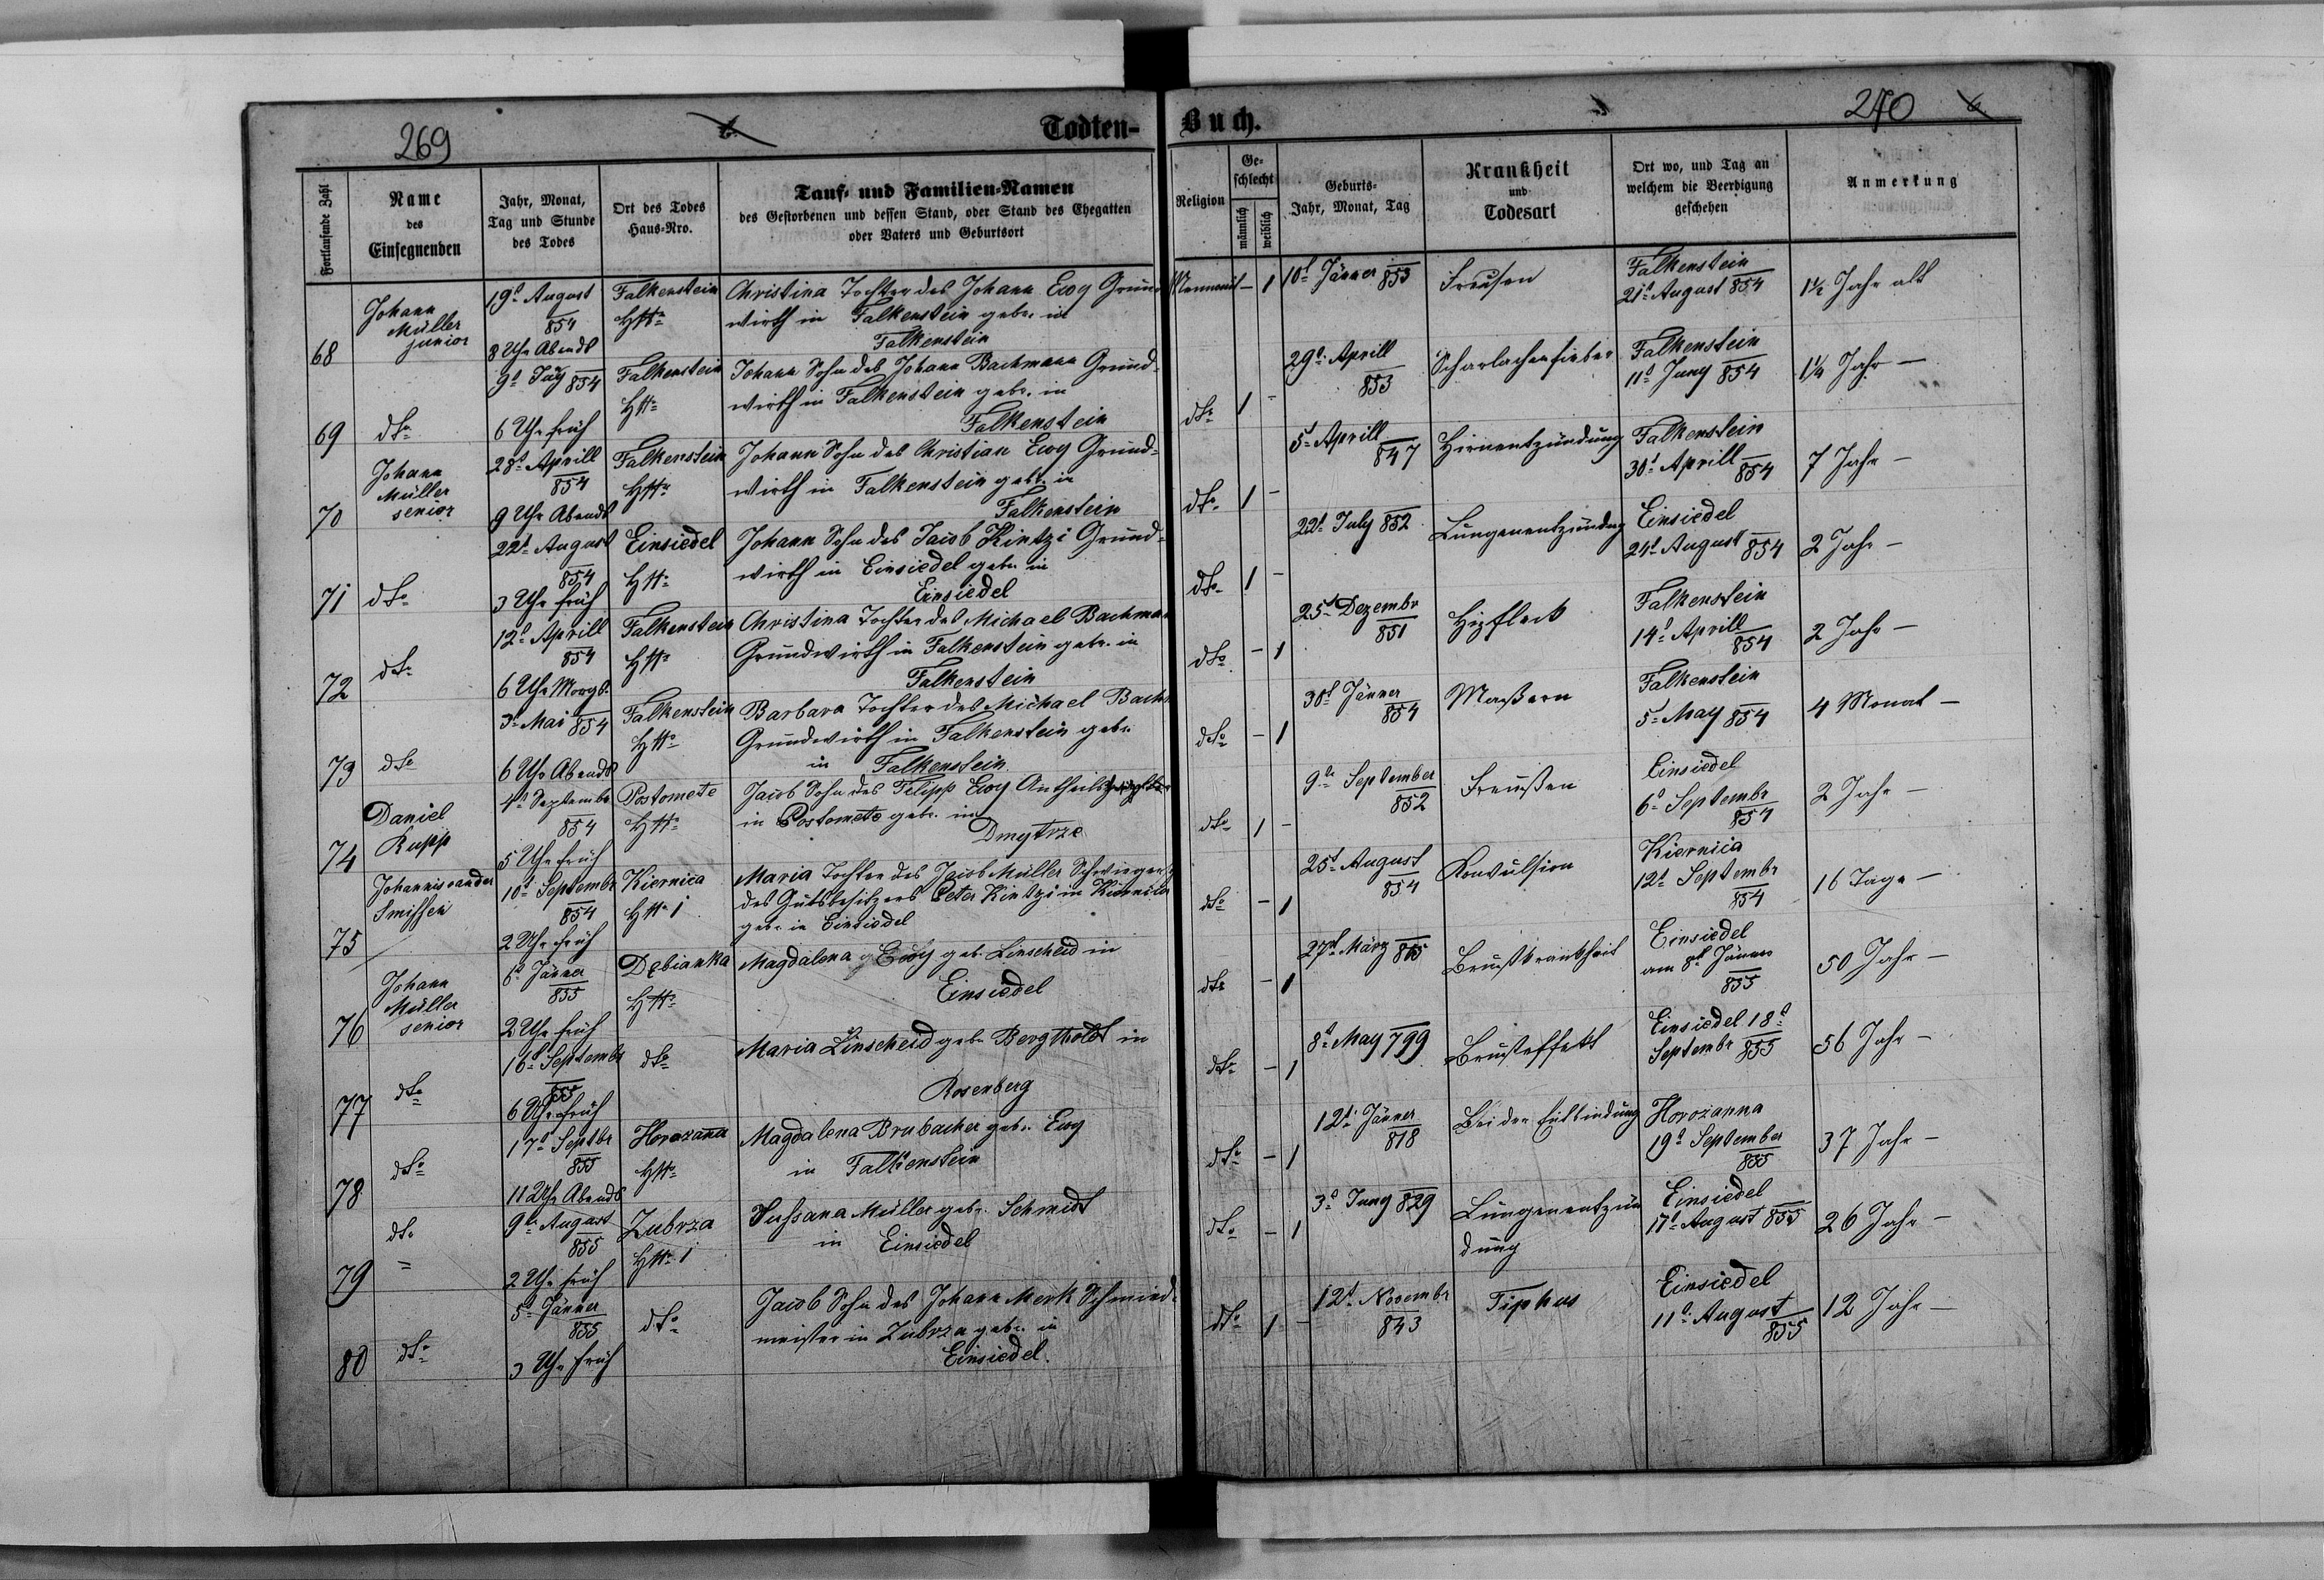 269
Todten-
Buch.
270
6
Fortlaufende Zahl
Name
des
Einsegnenden
Jahr, Monat,
Tag und Stunde
des Todes
Ort des Todes
Haus-Nro.
Tauf- und Familien-Namen
des Gestorbenen und dessen Stand, oder Stand des Ehegatten
oder Vaters und Geburtsort
Religion
Ge-
schlecht
männlich
weiblich
Geburts-
Jahr, Monat, Tag
Krankheit
und
Todesart
Ort wo, und Tag an
welchem die Beerdigung
geschehen
Anmerkung
68
Johann
Müller
junior
19t August
854
8 Uhr Abends
Falkenstein
Christina Tochter des Johann Ewy Grund
wirth in Falkenstein geb. in
Falkenstein
Mennonit - 1
10t Jänner 853
Freusen
Falkenstein
21t August 854
1½ Jahr alt
69
dto
9t Juny 854
6 Uhr früh
Falkenstein
Johann Sohn des Johann Bachmann Grund-
wirth in Falkenstein geb. in
Falkenstein
dto 1 -
29t Aprill
853
Scharlachenfieber
Falkenstein
11t Juny 854
1¼ Jahr -
70
Johann
Müller
senior
28t Aprill
854
9 Uhr Abends
Falkenstein
Johann Sohn des Christian Ewy Grund-
wirth in Falkenstein geb. in
Falkenstein
dto 1 -
5t Aprill
847
Hirnentzündung
Falkenstein
30t Aprill 854
7 Jahr -
71
dto
22t August
854
3 Uhr früh
Einsiedel
Johann Sohn des Jacob Kintzi Grund-
wirth in Einsiedel geb. in
Einsiedel
dto 1 -
22t July 852
Lungenentzündng
Einsiedel
24t August 854
2 Jahr -
72
dto
12t Aprill
854
6 Uhr Morgs.
Falkenstein
Christina Tochter des Michael Bachman
Grundwirth in Falkenstein geb. in
Falkenstein
dto - 1
25t Dezembr
851
Falkenstein
14t Aprill
854
2 Jahr -
73
dto
3t Mai 854
6 Uhr Abends
Falkenstein
Barbara Tochter des Michael Bach
Grundwirth in Falkenstein geb.
in Falkenstein
dto - 1
30t Jänner
854
Maßern
Falkenstein
5t May 854
4 Monat -
74
Daniel
Rupp
4t Septembr
854
5 Uhr früh
Postomete
Jacob Sohn des Filipp Ewy
in Postomete geb. in
Dmytrze
dto 1 -
9te September
852
Freußen
Einsiedel
6t Septembr
854
2 Jahr -
75
Johannis vander
Smissen
10t Septembr
854
2 Uhr früh
Kiernica
1
Maria Tochter des Jacob Müller
des Gutsbesitzers Peter Kintzi in Kiernica
geb. in Einsiedel
dto - 1
25t August
854
Konvulsion
Kiernica
12t Septembr
854
16 Tage -
76
Johann
Müller
senior
6t Jänner
855
2 Uhr früh
Dębianka
Magdalena Ewy geb. Linscheid in
Einsiedel
dto - 1
27t März
Brustkrankheit
Einsiedel
am 8t Jänner
855
50 Jahr -
77
dto
16t Septembr
855
6 Uhr früh
dto
Maria Linscheid geb. Bergtholdt in
Rosenberg
dto - 1
8t May 799
Einsiedel 18t
Septembr 855
56 Jahr -
78
dto
17t Septbr
855
11 Uhr Abends
Horozanna
Magdalena Brubacher geb. Ewy
in Falkenstein
dto - 1
12t Jänner
818
Bei der Entbindung
Horozanna
19t September
855
37 Jahr -
79
dto
9te August
855
2 Uhr früh
Zubrza
1
Sussana Müller geb. Schmidt
in Einsiedel
dto - 1
3t Juny 829
Lungenentzün
dung
Einsiedel
17t August 855
26 Jahr -
80
dto
5t Jänner
855
3 Uhr früh
dto
Jacob Sohn des Johann Merk Schmied-
meister in Zubrza geb. in
Einsiedel.
dto 1 -
12t Novembr
843
Tiphus
Einsiedel
11t August
855
12 Jahr -